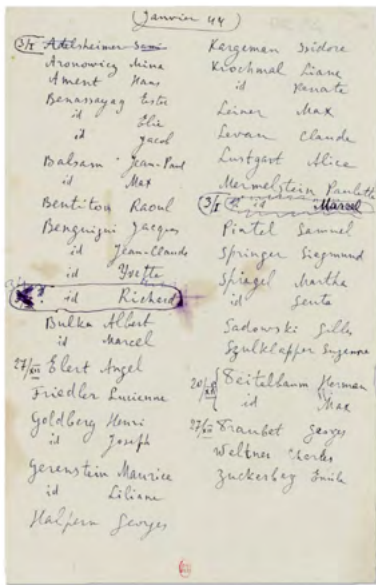 (Janvier 44)
3/I Adelsheimer Sami
Aronowicz Mina
Ament Hans
Benassayag Ester
id Elie
id Jacob
Balsam Jean-Paul
id Max
Bentitou Raoul
Benguigui Jacques
id Jean-Claude
id Yvette
id Richard
Bulka Albert
id Marcel
27/XII Elert Angel
Friedler Lucienne
Goldberg Henri
id Joseph
Gerenstein Maurice
id Liliane
Halpern Georges
Kargeman Isidore
Krochmal Liane
id Renate
Leiner Max
Levan Claude
Lustgart Alice
Mermelstein Paulette
3/I id Marcel
Pintel Samuel
Springer Siegmund
Spiegel Martha
id Senta
Sadowski Gilles
Szulklapper Suzanne
20/XII Teitelbaum Herman
id Max
27/XII Traubet Georges
Weltner Charles
Zuckerberg Emile